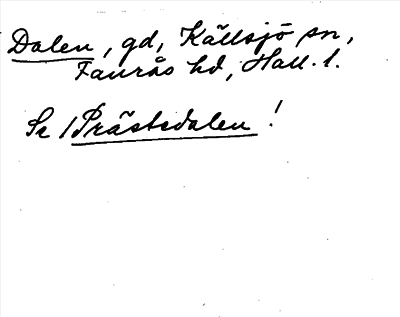 Dalen, gd, Källsjö sn,
Faurås hd, Hall. l.
Se /Prästsdalen!